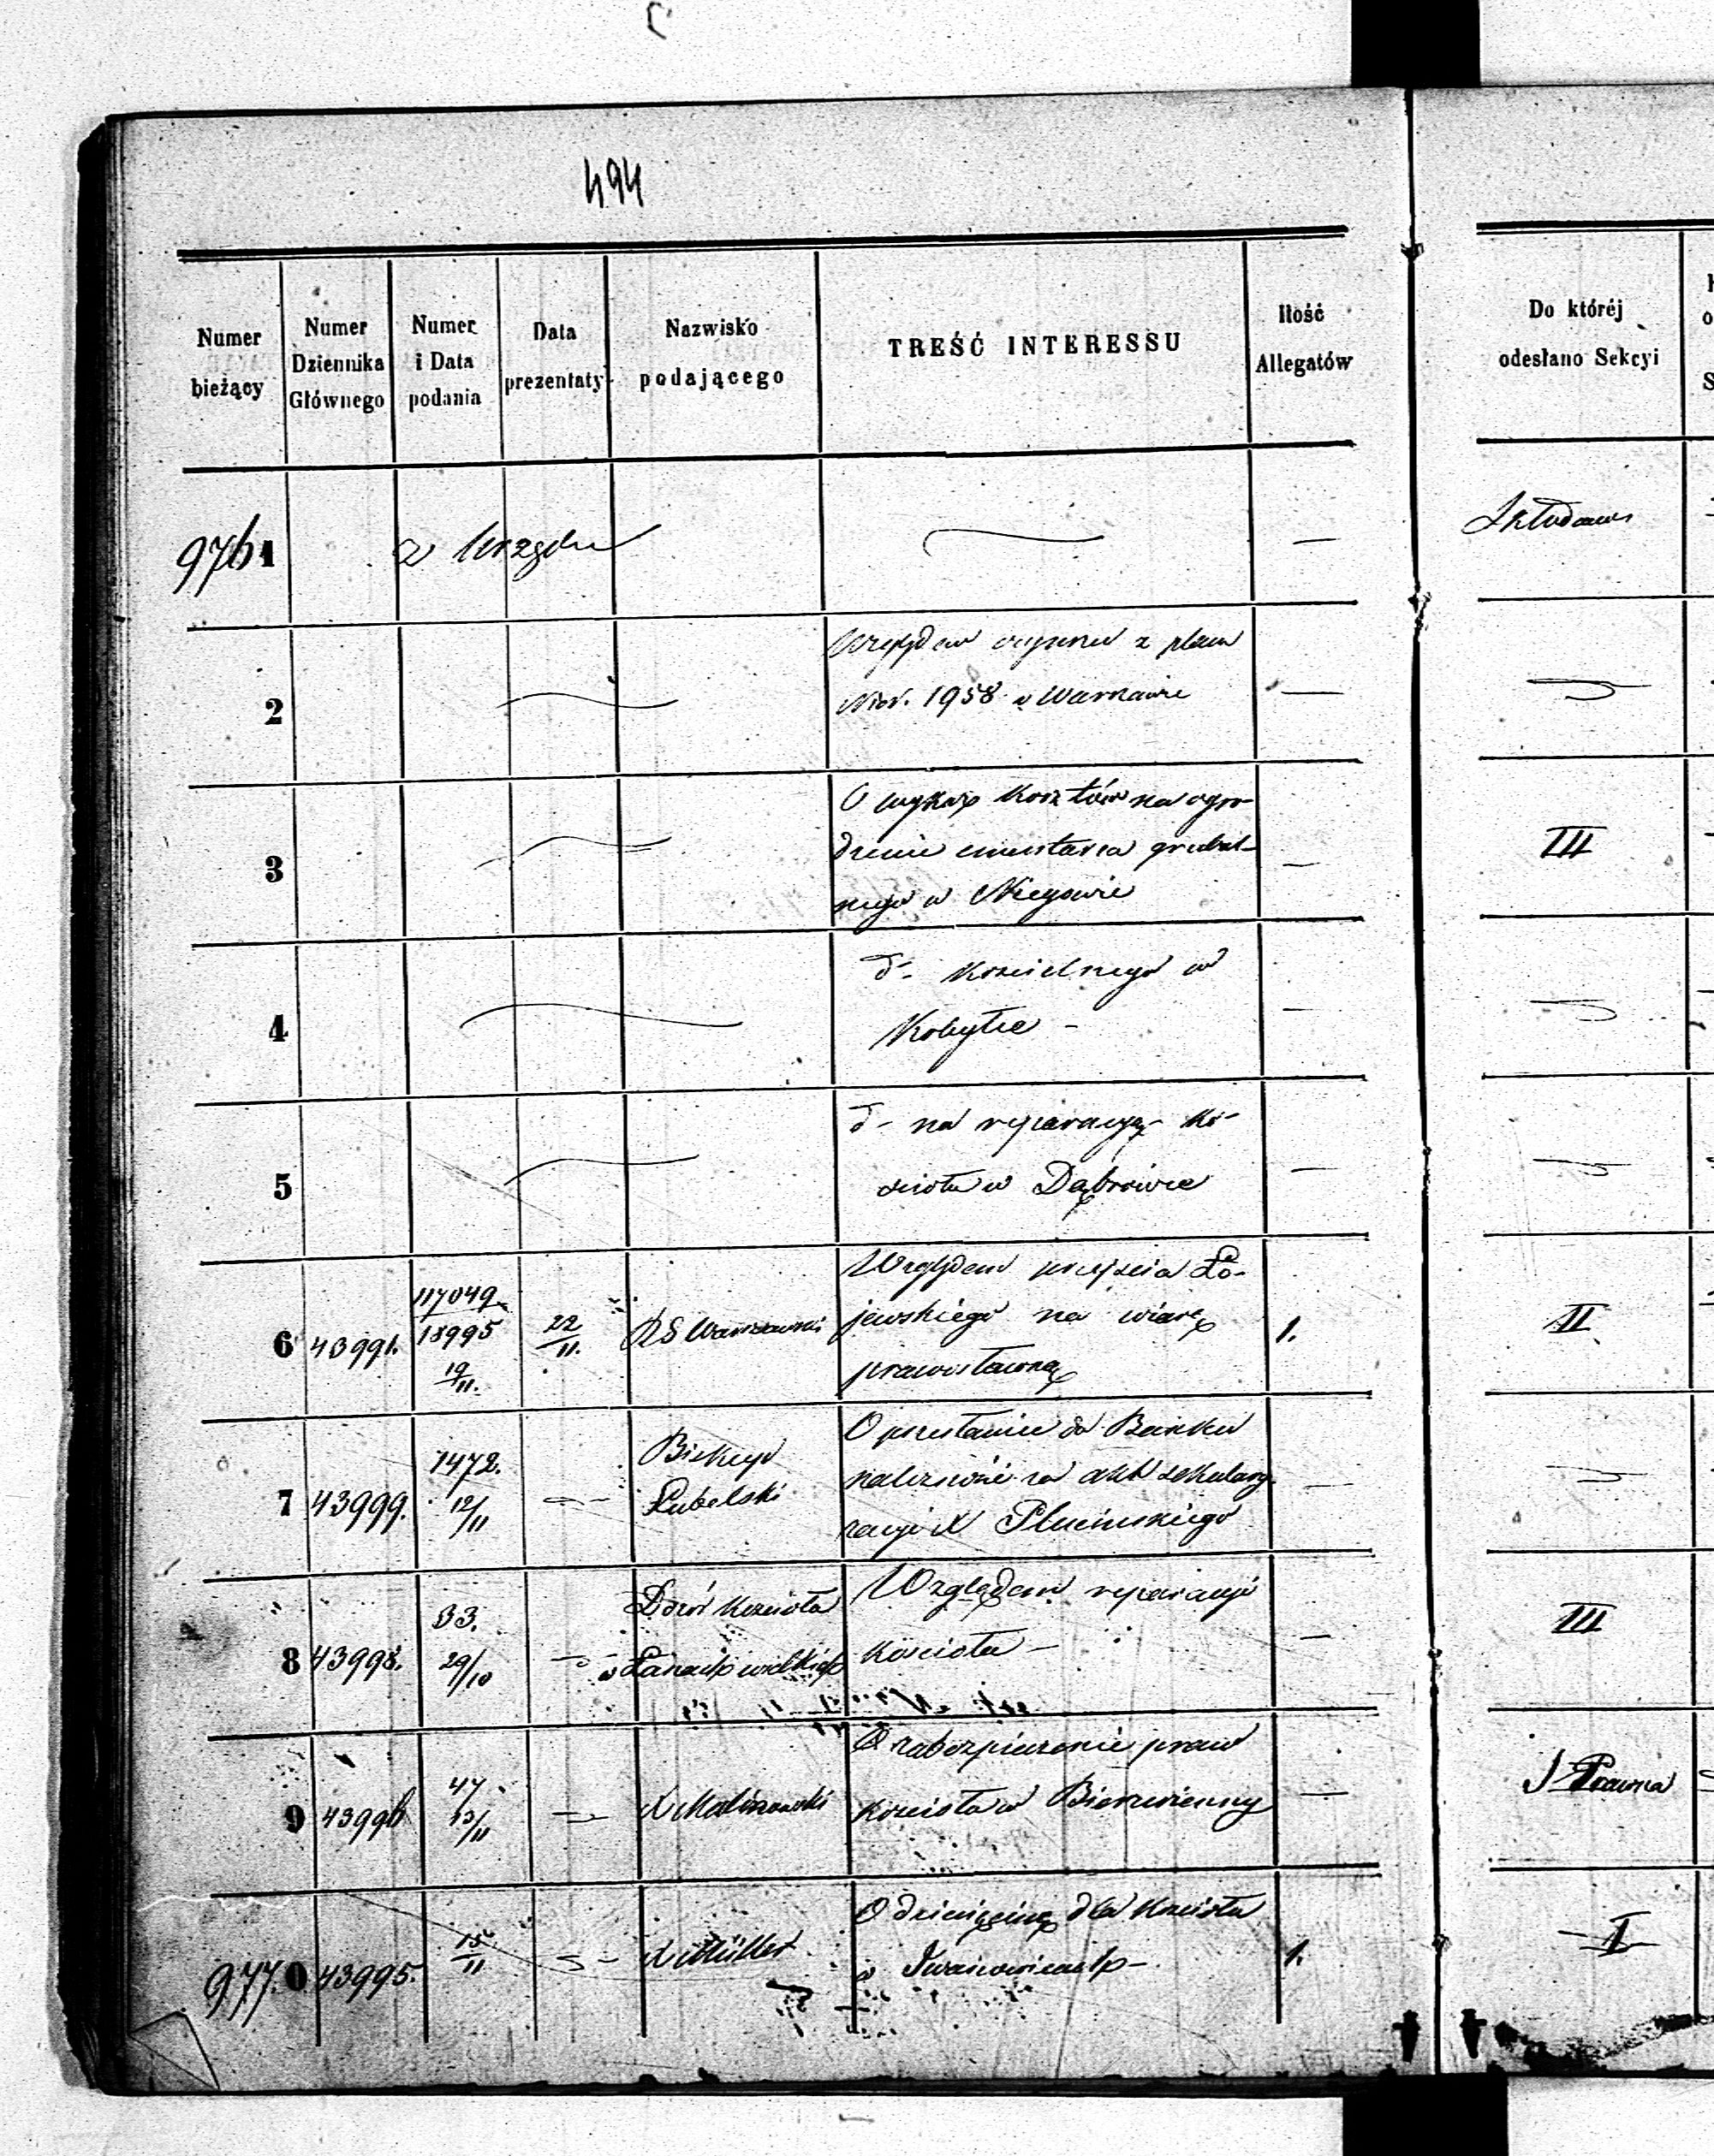 494
Numer bieżący
Numer Dziennika Głównego
Numer i Data podania
Data prezentaty
Nazwisko podającego
TREŚĆ INTERESSU
Ilość Allegatów
Do której odesłano Sekcyi
9761 z Urzędu —
2 Względem czynszu z placu
Nro. 1958 w Warszawie —
3 O wykaz kosztów na ogro-
dzenie cmentarza grzebal-
nego w Niegowie — III
4 dº kościelnego w
Kobyłce — —
5 dº na reparacyę ko-
ścioła w Dąbrówce —
6 43991. 117049
18995
19/11. 22/11. RG Warszawski
Względem przejścia Ło-
jewskiego na wiarę
prawosławną 1. II
7 43999. 1472.
12/11 Biskup
Lubelski
O przesłanie do Banku
należności za akt sekulary-
zacyi X Plucińskiego —
8 43998. 33.
29/10 Dozór kościoła
w Łanach wielkich
Względem reparacyi
kościoła — — III
9 43996 47
13/11 X Maliszewski
O zabezpieczenie praw
kościoła w Bierzwienny — S. Prawna
977.0 43995. 15/11 X Müller
O dziesięcinę dla kościoła
w Iwanowicach — 1. I